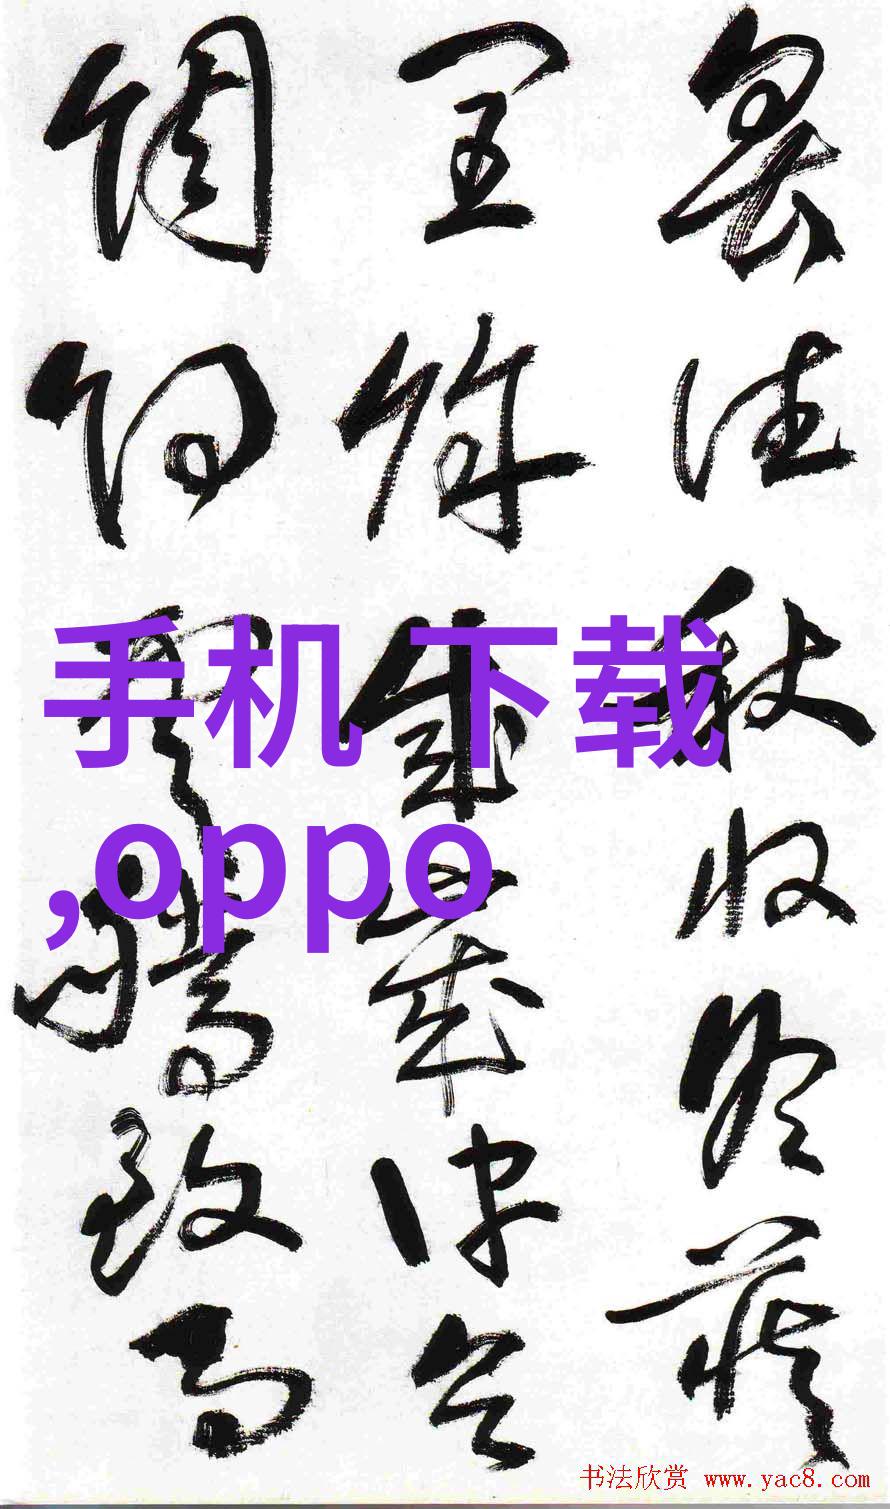 暑往秋收冬藏
閏餘成歲律呂
調陽雲騰致雨
手机下载
,oppo
书法欣赏 www.yac8.com